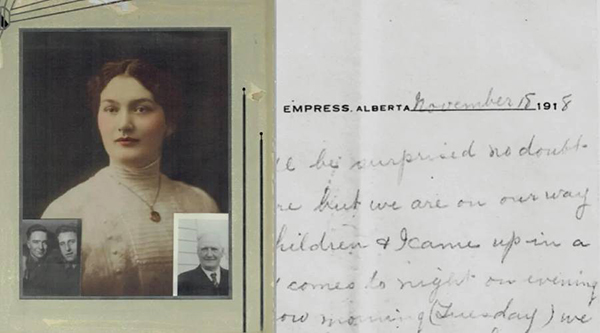 EMPRESS, ALBERTA November 18 1918
be surprised no doubt
but we are on our way
children & I came up in a
comes to night on evening
morning (Tuesday) we